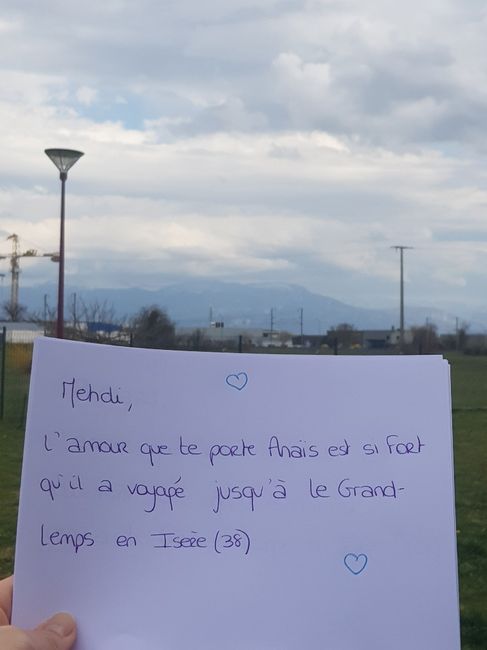 Mehdi,
L'amour que te porte Anaïs est si fort
qu'il a voyagé jusqu'à le Grand-
Lemps en Isère (38)